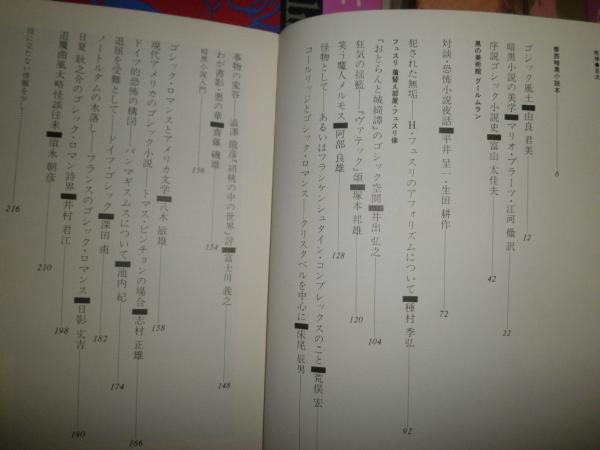 牧神 目次
泰西暗黒小説本 6
ゴシック風土 由良 君美 12
暗黒小説の美学 マリオ・プラーツ・江河 徹 訳 22
序説ゴシック小説史 富山 太佳夫 42
黒の美術館 グールムラン
対談・恐怖小説夜話 平井 呈一・生田 耕作 72
犯された無垢 H・フュスリのアフォリズムについて 種村 季弘 92
フュスリ 着替え部屋・フュスリ像
『おとらんと城綺譚』のゴシック空間 井出 弘之 104
狂気の揺籃 『ヴァテック』頌 塚本 邦雄 120
笑う魔人メルモス 阿部 良雄 128
怪物として あるいはフランケンシュタイン・コンプレックスのこと 荒俣 宏
コールリッジとゴシック・ロマンス クリスタベルを中心に 床尾 辰男
事物の変容 澁澤 龍彦『胡桃の中の世界』評 富士川 義之 148
わが書影・悪の華 齋藤 磯雄 154
暗黒小説入門 156
ゴシック・ロマンスとアメリカ文学 八木 敏雄 158
現代アメリカのゴシック小説 トマス・ピンチョンの場合 志村 正雄 166
ドイツ的恐怖の構図 パンマギスムスについて 池内 紀 174
退屈を受難として ドイツ・ゴシック 深田 甫 182
ノートルダムの水落し フランスのゴシック・ロマンス 日影 丈吉 190
日夏 耿之介のゴシック・ロマン詩界 井村 君江 198
道覆曲風大略怪談往来 須永 朝彦 210
役に立たない情報を少し 216